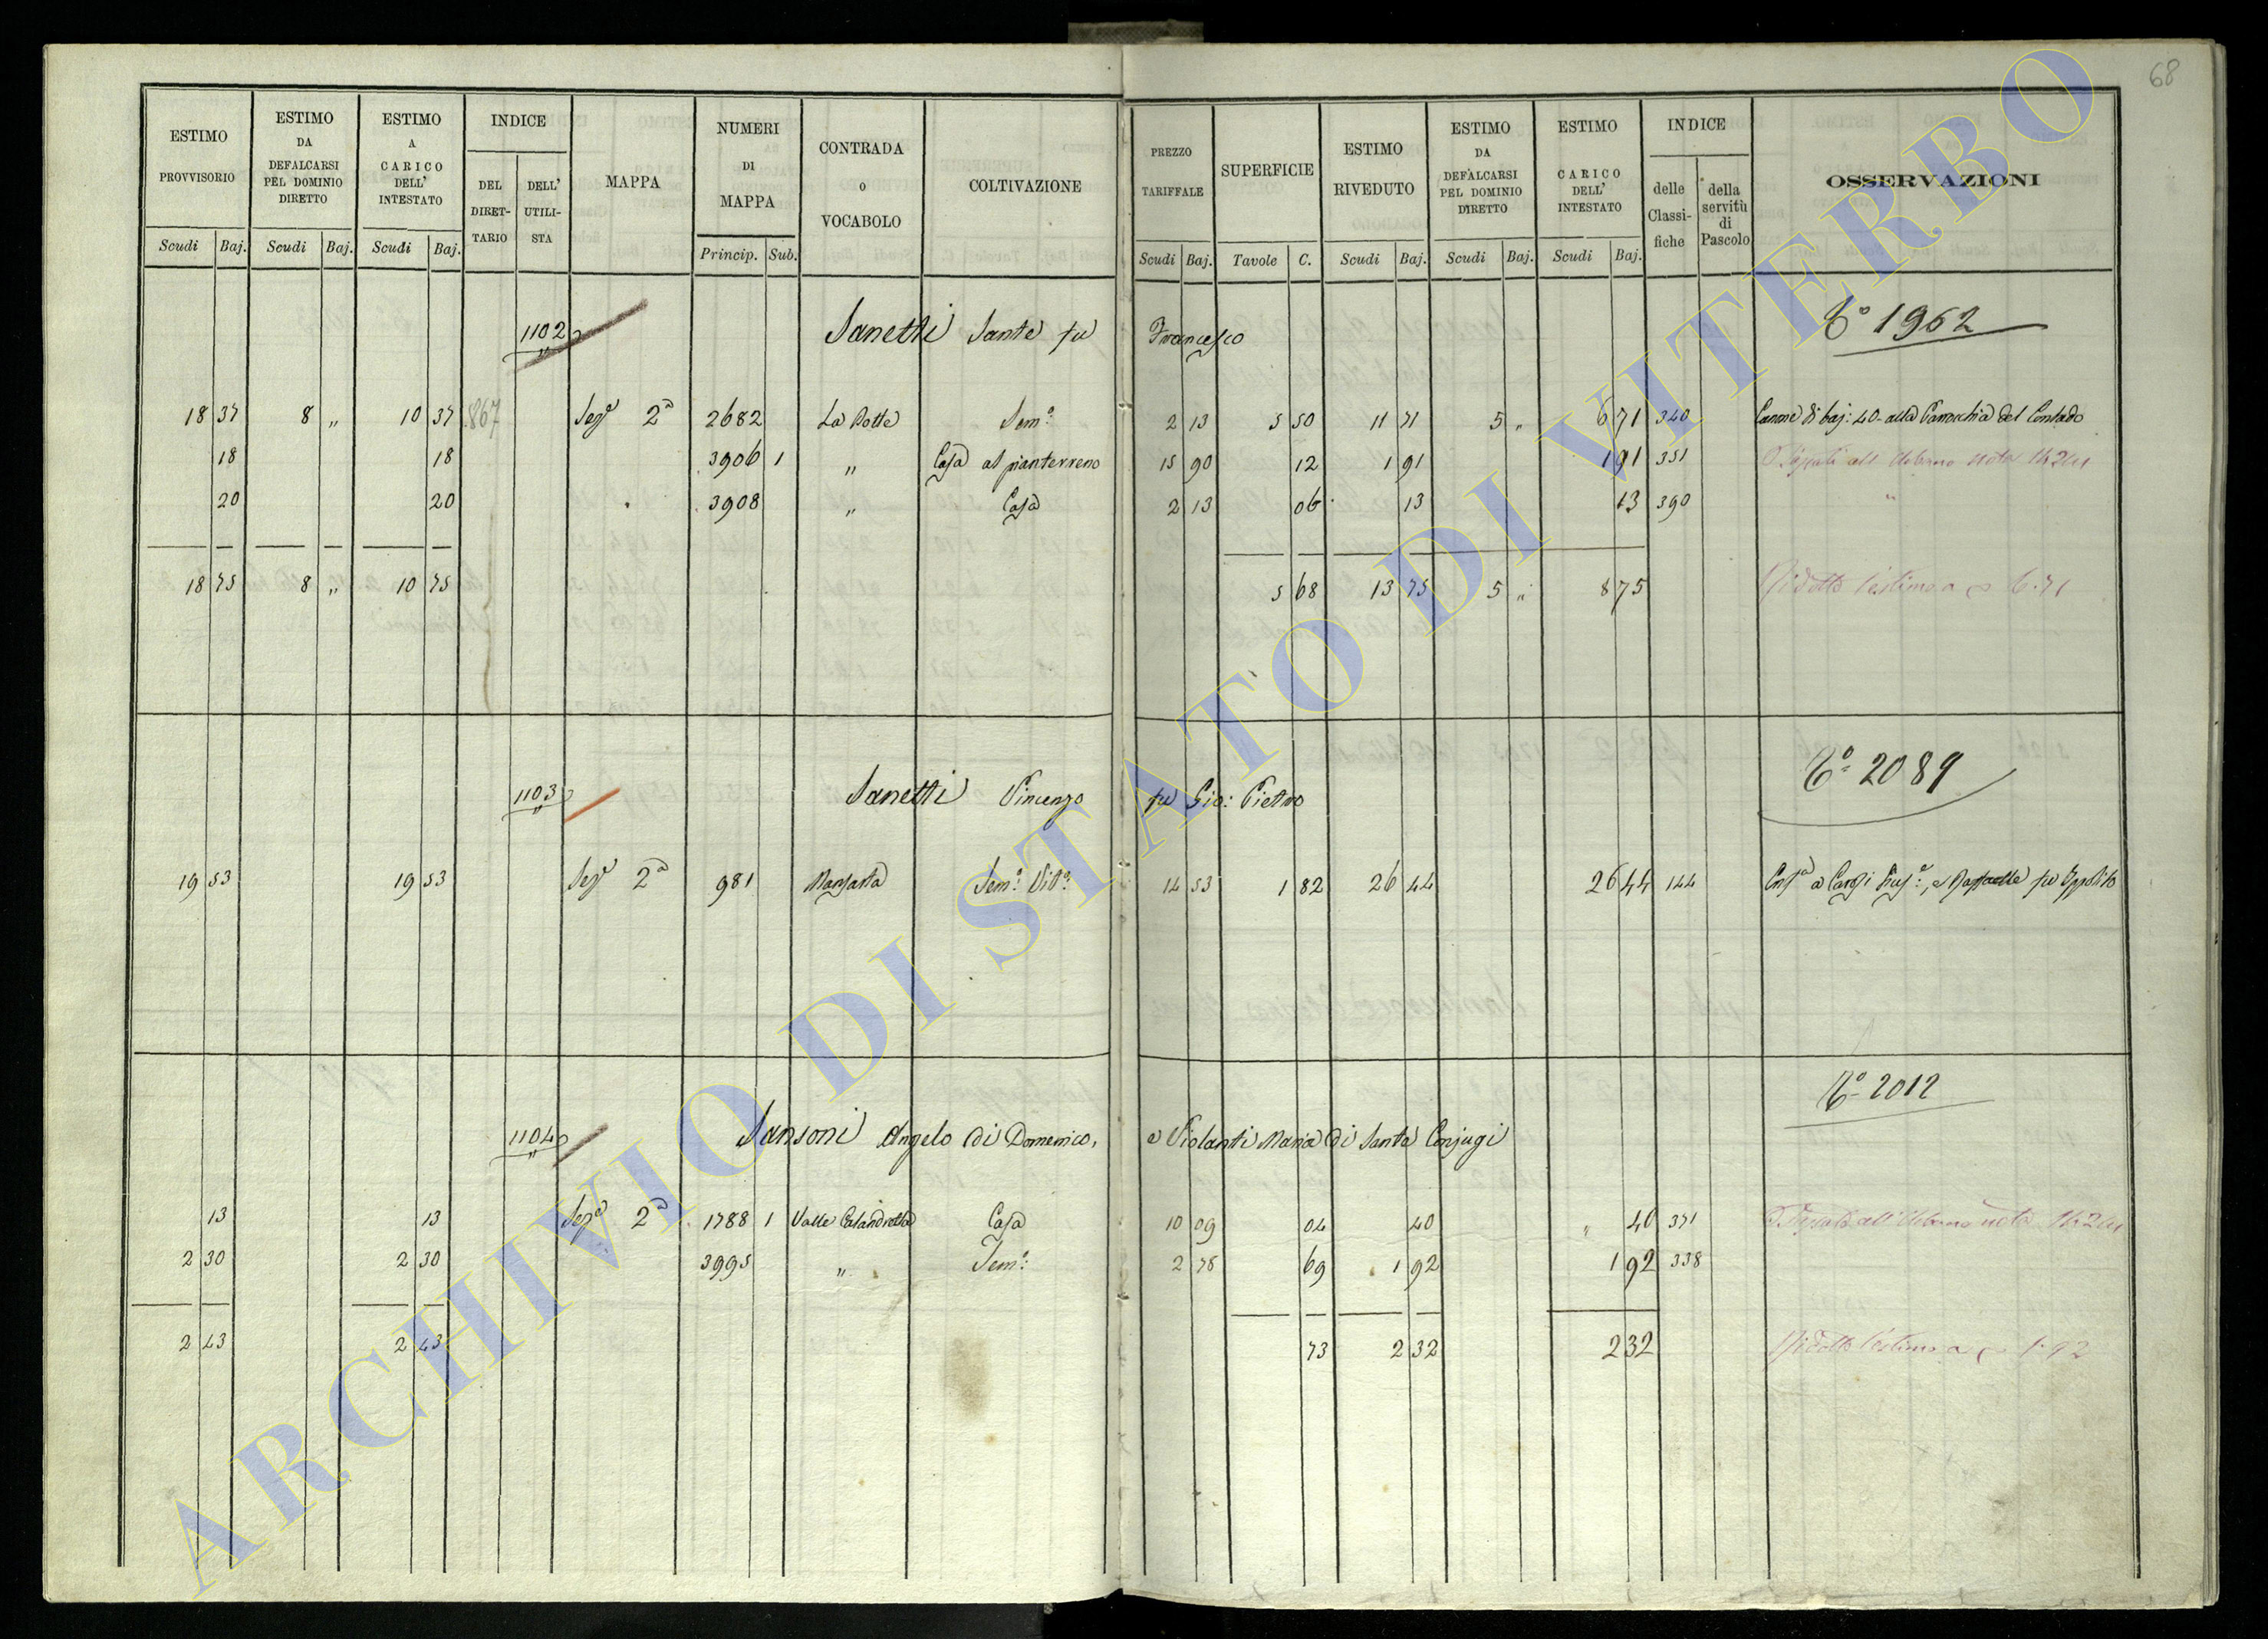 68
ESTIMO PROVVISORIO
Scudi Baj.
ESTIMO DA DEFALCARSI PEL DOMINIO DIRETTO
Scudi Baj.
ESTIMO A CARICO DELL' INTESTATO
Scudi Baj.
INDICE
DEL DIRET-TARIO
DELL' UTILI-STA
MAPPA
NUMERI DI MAPPA
Princip. Sub.
CONTRADA o VOCABOLO
COLTIVAZIONE
PREZZO TARIFFALE
Scudi Baj.
SUPERFICIE
Tavole C.
ESTIMO RIVEDUTO
Scudi Baj.
ESTIMO DA DEFALCARSI PEL DOMINIO DIRETTO
Scudi Baj.
ESTIMO CARICO DELL' INTESTATO
Scudi Baj.
INDICE
delle Classi-fiche
della servitù di Pascolo
OSSERVAZIONI
1102 Sanetti Sante fu Francesco 1962
18 37 8 " 10 37 867 Sez.e 2a 2682 Sem.o 2 13 5 50 11 71 5 " 6 71 340 Canone di baj: 40 alla Parrocchia del Contado
18 18 3906 1 " Casa al pianterreno 15 90 12 1 91 1 91 351
20 20 3908 " Casa 2 13 06 13 13 390 "
18 75 8 " 10 75 5 68 13 75 5 " 8 75 Ridotto l'estimo a 6.71
1103 Sanetti Vincenzo fu Gio: Pietro 2089
19 53 19 53 Sez.e 2a 981 Sem.o Vit.o 14 53 1 82 26 44 26 44 144
1104 Sansoni Angelo di Domenico, e Violanti Maria di Sante Conjugi 2012
13 13 Sez.e 2a 1788 1 Valle Calandrella Casa 10 09 04 40 " 40 371
2 30 2 30 3995 " Sem.o 2 78 69 1 92 1 92 338
2 43 2 43 73 2 32 2 32 Ridotto l'estimo a 1.92
ARCHIVIO DI STATO DI VITERBO